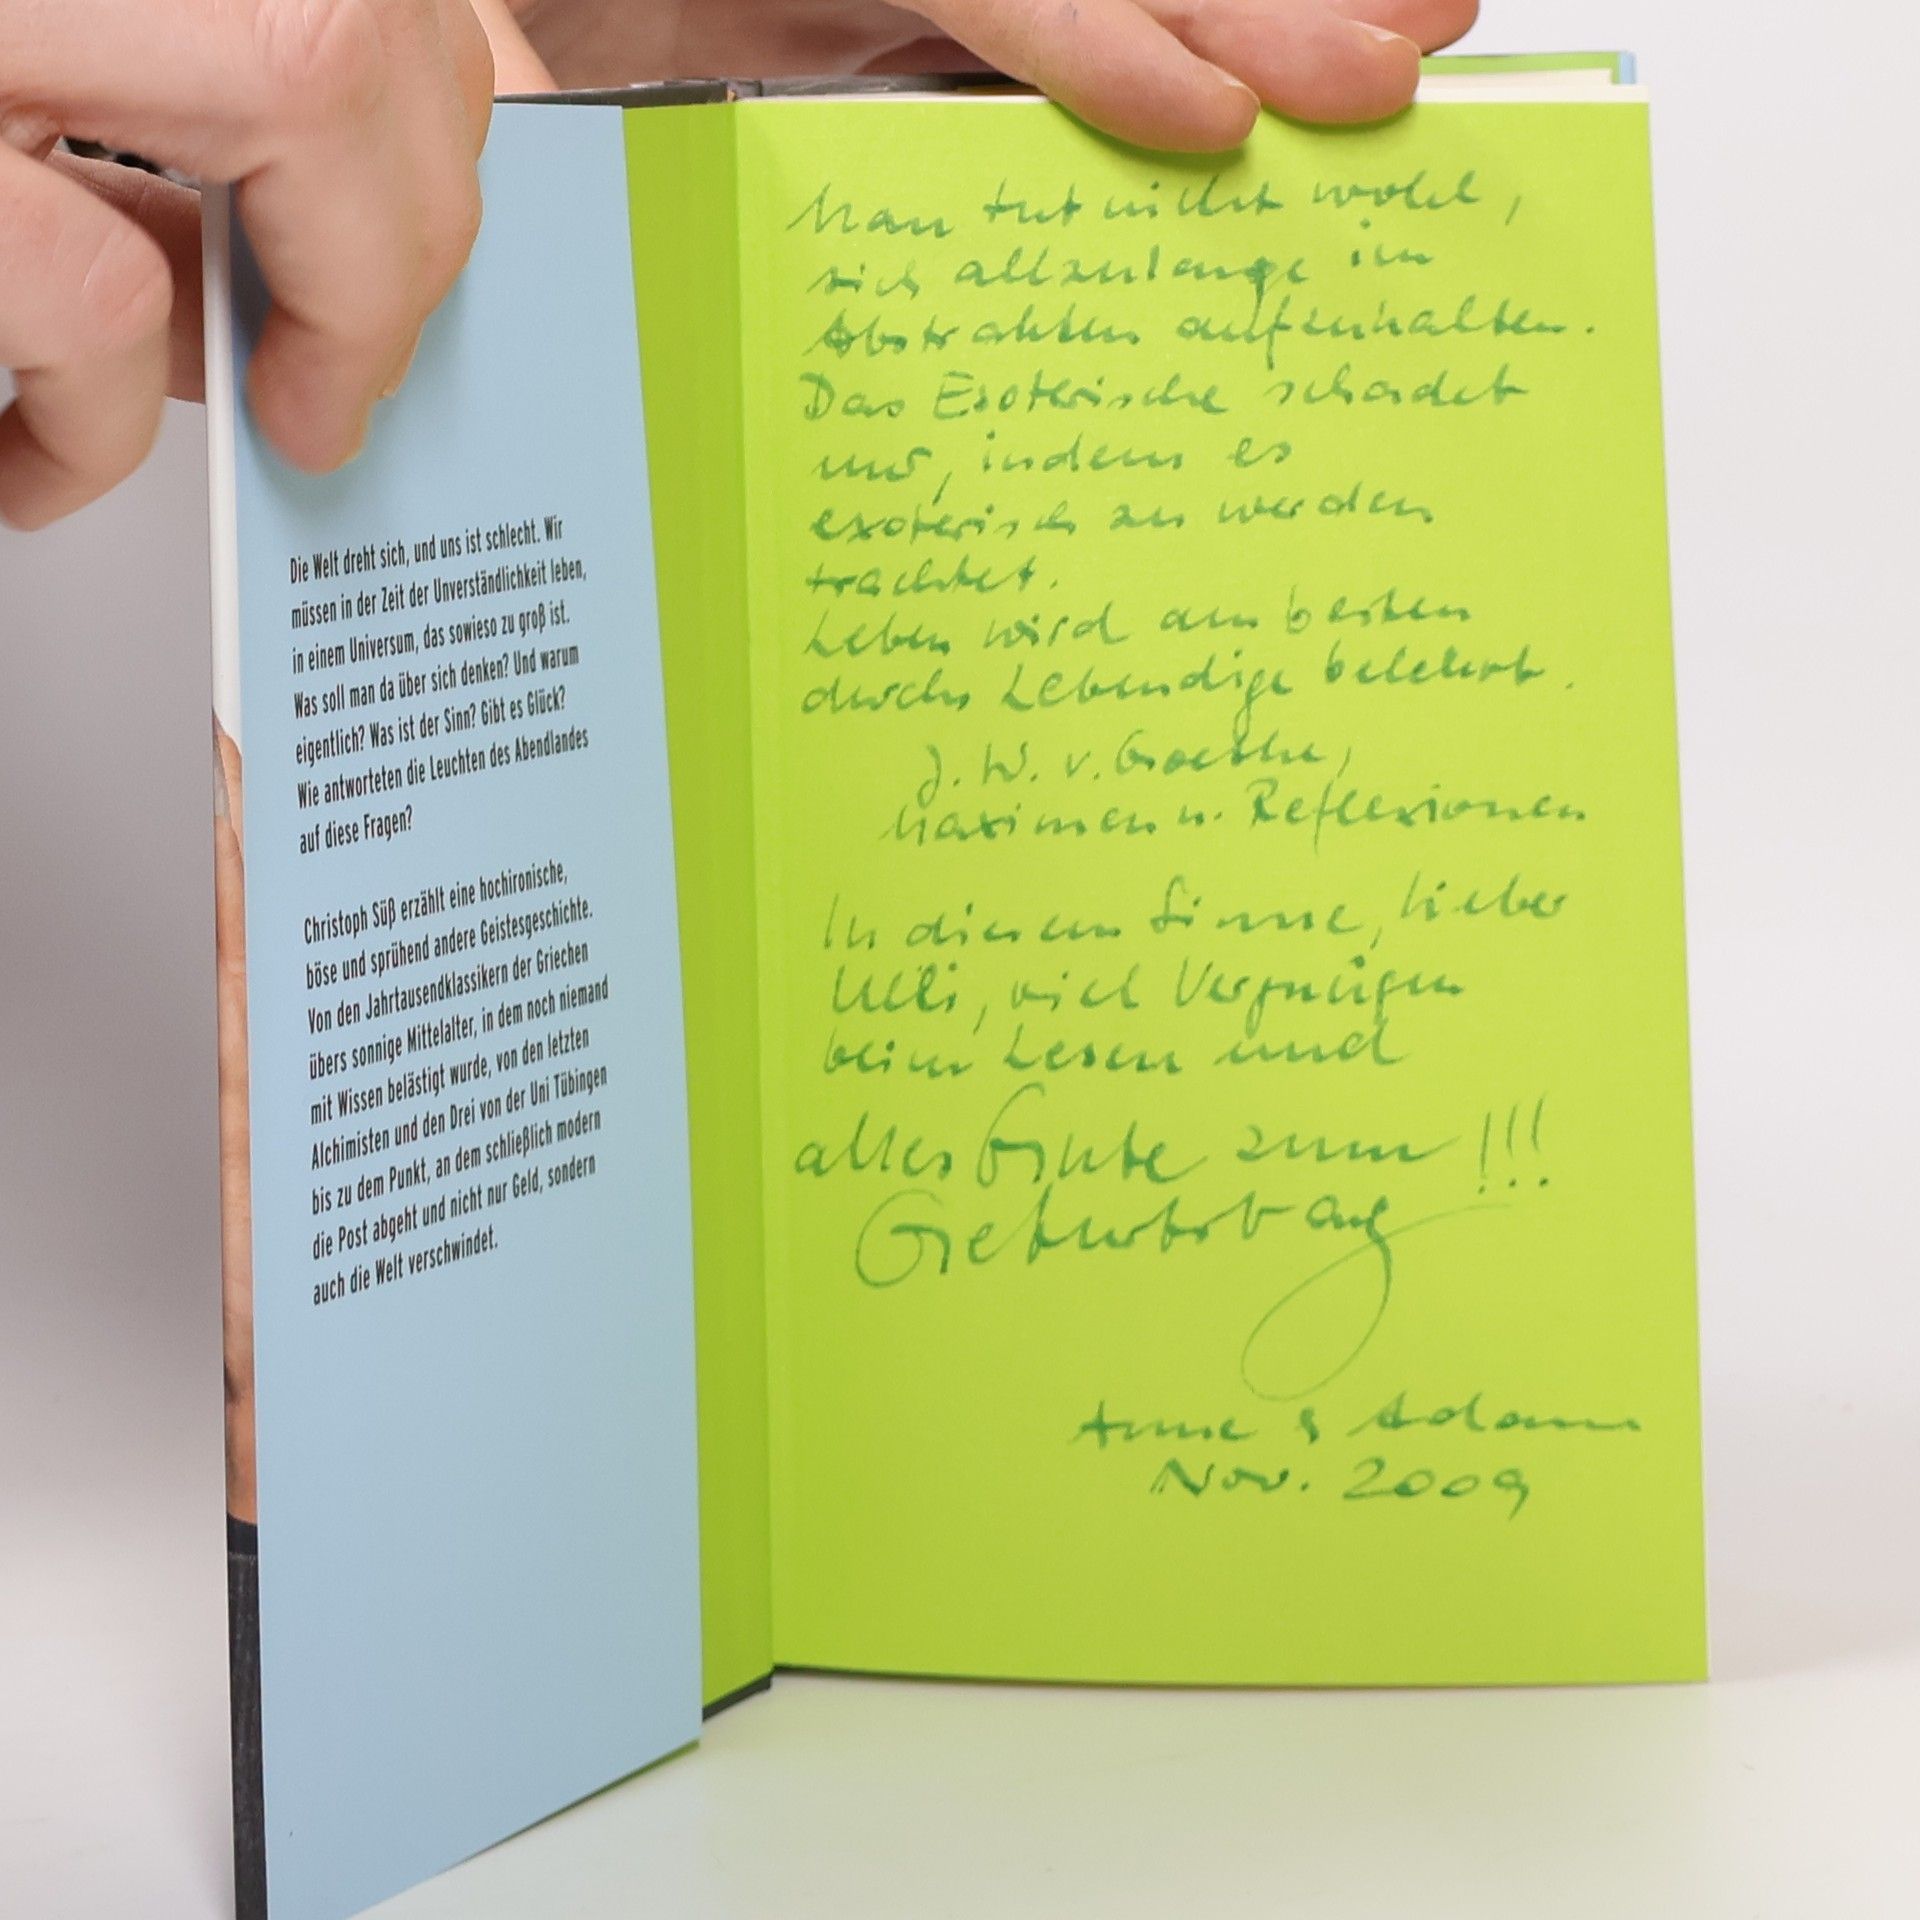 Die Welt dreht sich, und uns ist schlecht. Wir
müssen in der Zeit der Unverständlichkeit leben,
in einem Universum, das sowieso zu groß ist.
Was soll man da über sich denken? Und warum
eigentlich? Was ist der Sinn? Gibt es Glück?
Wie antworteten die Leuchten des Abendlandes
auf diese Fragen?
Christoph Süß erzählt eine hochironische,
böse und sprühend andere Geistesgeschichte.
Von den Jahrtausendklassikern der Griechen
übers sonnige Mittelalter, in dem noch niemand
mit Wissen belästigt wurde, von den letzten
Alchimisten und den Drei von der Uni Tübingen
bis zu dem Punkt, an dem schließlich modern
die Post abgeht und nicht nur Geld, sondern
auch die Welt verschwindet.
Man tut nicht wohl,
sich allzulange im
Abstrakten aufzuhalten.
Das Esoterische schadet
nur, indem es
exoterisch zu werden
trachtet.
Leben wird am besten
durchs Lebendige belehrt.
J. W. v. Goethe,
Maximen u. Reflexionen
In diesem Sinne, lieber
Ulli, viel Vergnügen
beim Lesen und
alles Gute zum !!!
Geburtstag
Anne & Adam
Nov. 2009